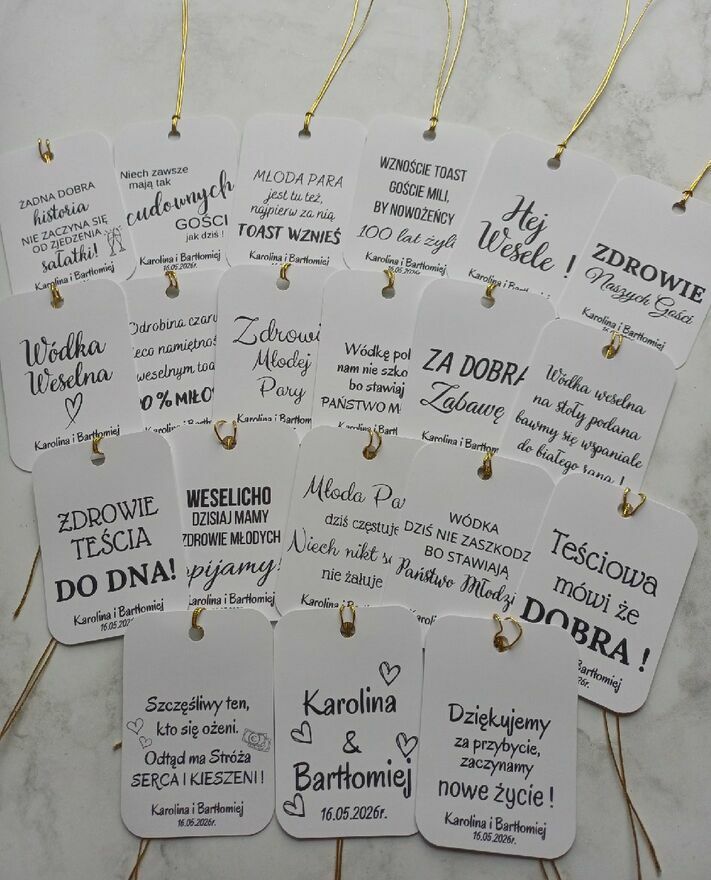 ŻADNA DOBRA
historia
NIE ZACZYNA SIĘ
OD ZJEDZENIA
sałatki!
Karolina i Bartłomiej
Niech zawsze
mają tak
cudownych
GOŚCI
jak dziś !
Karolina i Bartłomiej
16.05.2026r.
MŁODA PARA
jest tu też,
najpierw za nią
TOAST WZNIEŚ
Karolina i Bartłomiej
WZNOŚCIE TOAST
GOŚCIE MILI,
BY NOWOŻEŃCY
100 lat żyli
Karolina i Bartłomiej
16.05.2026r.
Hej
Wesele !
Karolina i
ZDROWIE
Naszych Gości
Karolina i Bartłomiej
Wódka
Weselna
Karolina i Bartłomiej
Odrobina
weselnym
Zdrowi
Młodej
Pary
Karolina i Bartłomiej
Wódkę
nam nie
bo stawiaj
PAŃSTWO M
Karolina i
ZA DOBRĄ
Zabawę
Karolina i Bartłomiej
Wódka weselna
na stoły podana
bawmy się wspaniale
do białego rana !
ZDROWIE
TEŚCIA
DO DNA!
Karolina i Bartłomiej
16.05.2026r.
WESELICHO
DZISIAJ MAMY
ZDROWIE MŁODYCH
pijamy!
Karolina i Bartłomiej
Młoda Pa
dziś częstuje
Niech nikt
nie żałuje
Karolina i
WÓDKA
DZIŚ NIE ZASZKODZ
BO STAWIAJĄ
Państwo Młodzi
Karolina i Bartłomiej
Teściowa
mówi że
DOBRA !
Bartłomiej
Szczęśliwy ten,
kto się ożeni.
Odtąd ma Stróża
SERCA I KIESZENI !
Karolina i Bartłomiej
16.05.2026r.
Karolina
&
Bartłomiej
16.05.2026r.
Dziękujemy
za przybycie,
zaczynamy
nowe życie !
Karolina i Bartłomiej
16.05.2026r.